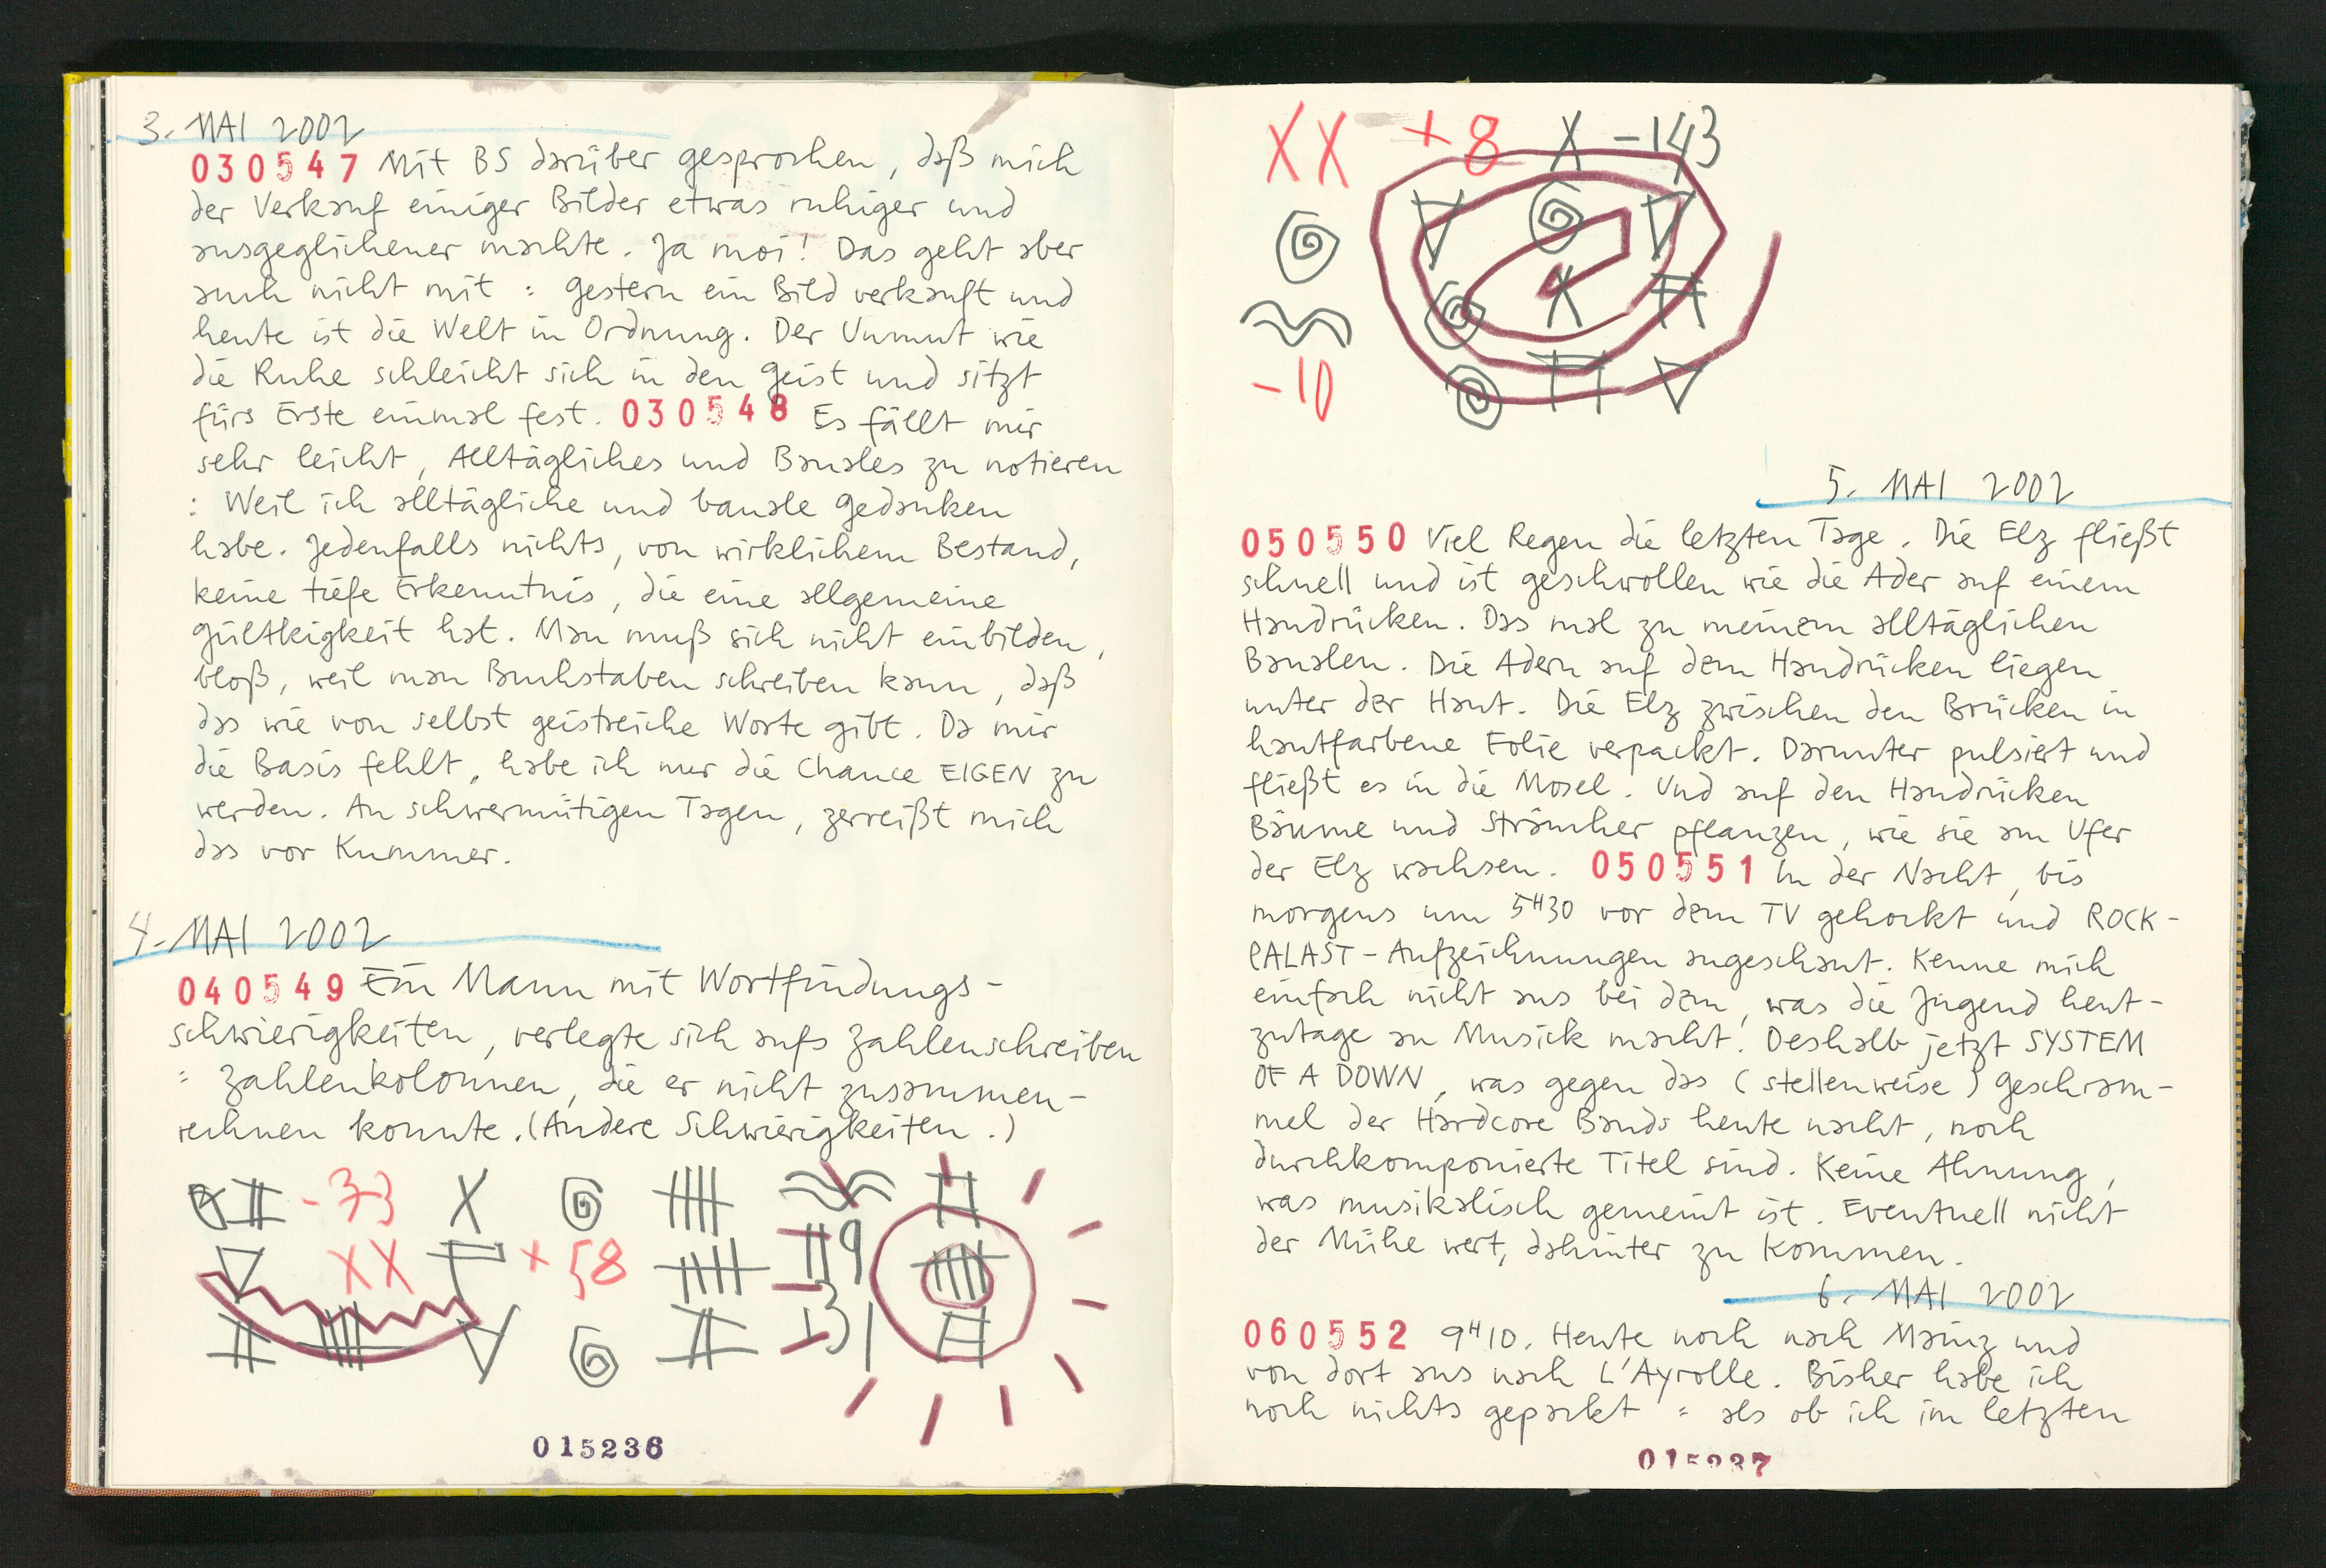 3. MAI 2002
030547 Mit BS darüber gesprochen, daß mich
der Verkauf einiger Bilder etwas ruhiger und
ausgeglichener machte. Ja moi! Das geht aber
auch nicht mit : gestern ein Bild verkauft und
heute ist die Welt in Ordnung. Der Unmut wie
die Ruhe schleicht sich in den Geist und sitzt
fürs Erste einmal fest. 030548 Es fällt mir
sehr leicht, Alltägliches und Banales zu notieren
: Weil ich alltägliche und banale Gedanken
habe. Jedenfalls nichts, von wirklichem Bestand,
keine tiefe Erkenntnis, die eine allgemeine
Gültkigkeit hat. Man muß sich nicht einbilden,
bloß, weil man Buchstaben schreiben kann, daß
das wie von selbst geistreiche Worte gibt. Da mir
die Basis fehlt, habe ich nur die Chance EIGEN zu
werden. An schwermütigen Tagen, zerreißt mich
das vor Kummer.
4. MAI 2002
040549 Ein Mann mit Wortfindungs-
schwierigkeiten, verlegte sich aufs Zahlenschreiben
: Zahlenkolonnen, die er nicht zusammen-
rechnen konnte. (Andere Schwierigkeiten.)
-33 X
119
XX +58
131
015236
XX +8 X -143
X
-10
5. MAI 2002
050550 Viel Regen die letzten Tage. Die Elz fließt
schnell und ist geschwollen wie die Ader auf einem
Handrücken. Das mal zu meinem alltäglichen
Banalen. Die Adern auf dem Handrücken liegen
unter der Haut. Die Elz zwischen den Brücken in
hautfarbene Folie verpackt. Darunter pulsiert und
fließt es in die Mosel. Und auf den Handrücken
Bäume und Sträucher pflanzen, wie sie am Ufer
der Elz wachsen. 050551 In der Nacht, bis
morgens um 5H30 vor dem TV gehockt und ROCK-
PALAST-Aufzeichnungen angeschaut. Kenne mich
einfach nicht aus bei dem, was die Jugend heut-
zutage an Musick macht. Deshalb jetzt SYSTEM
OF A DOWN, was gegen das (stellenweise) Geschram-
mel der Hardcore Bands heute nacht, noch
durchkomponierte Titel sind. Keine Ahnung,
was musikalisch gemeint ist. Eventuell nicht
der Mühe wert, dahinter zu kommen.
6. MAI 2002
060552 9H10. Heute noch nach Mainz und
von dort aus nach L'Ayrolle. Bisher habe ich
noch nichts gepackt : als ob ich im letzten
015237